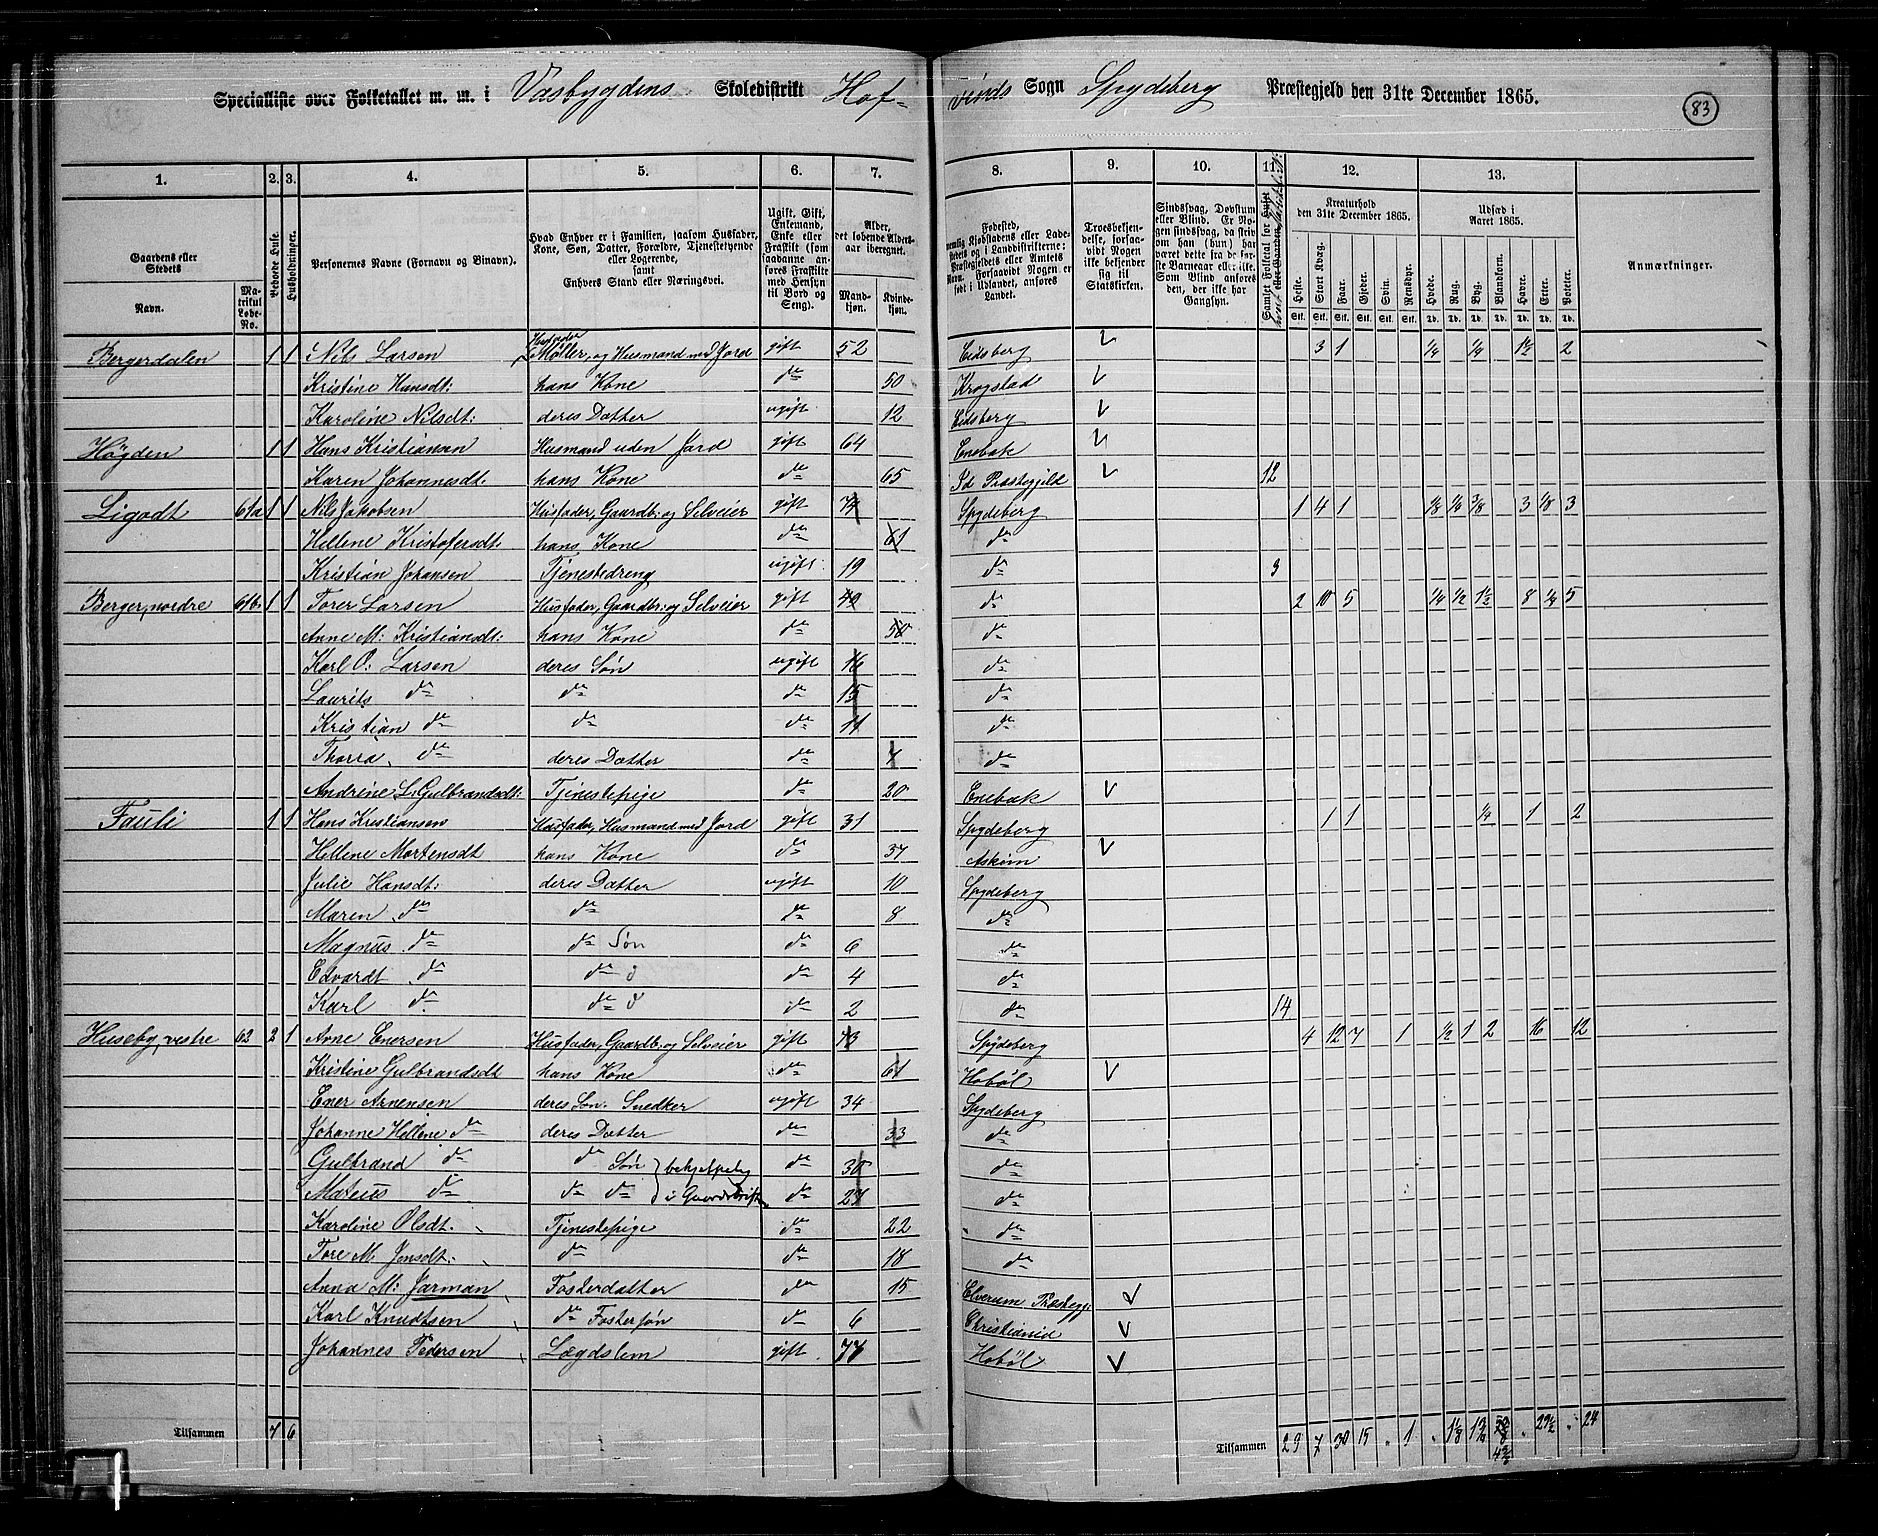 Specialliste over Folketallet m. m. i Vasbygdens Skoledistrikt Hof- vinds Sogn Spydeberg Præstegjeld den 31te December 1865. 83
1. 2. 3. 4. 5. 6. 7. 8. 9. 10. 11. 12. 13.
Gaardens eller Stedets
Navn.
Matrikul Løbe-No.
Beboede Huse.
Husholdninger.
Personernes Navne (Fornavn og Binavn).
Hvad Enhver er i Familien, saasom Husfader, Kone, Søn, Datter, Forældre, Tjenestetyende eller Logerende, samt Enhvers Stand eller Næringsvei.
Ugift, Gift, Enkemand, Enke eller Fraskilt (som saadanne anføres Fraskilte med Hensyn til Bord og Seng).
Alder, det løbende Aldersaar iberegnet.
Mandkjøn. Kvindekjøn.
Troesbekjendelse, forsaavidt Nogen ikke bekjender sig til Statskirken.
Kreaturhold den 31te December 1865.
Udsæd i Aaret 1865.
Heste. Stort Kvæg. Faar. Gjeder. Svin. Rensdyr. Hvede. Rug. Byg. Blandkorn. Havre. Erter. Poteter.
Anmærkninger.
Bergerdalen 1 1 Nils Larsen Husfader, Møller, og Husmand med Jord gift 52 Eidsberg V 3 1 1/4 1/4 1½ 2
Kristine Hansdt: hans Kone do 50 Krogstad V
Karoline Nilsdt: deres Datter ugift 12 Eidsberg V
Høgden 1 1 Hans Kristiansen Husmand uden Jord gift 64 Enebak V
Karen Johannesdt. hans Kone do 65 Id Præstegjeld V 12
Ligodt 61a 1 1 Nils Jakobsen Husfader, Gaardb: og Selveier gift 74 Spydeberg 1 4 1 1/8 1/4 3/8 3 1/8 3
Hellene Kristofersdt. hans Kone do 61 do
Kristian Johansen Tjenestedreng ugift 19 do 3
Berger, nordre 61b 1 1 Torer Larsen Husfader, Gaardbr: og Selveier gift 49 do 2 10 5 1/4 1/2 1½ 8 1/4 5
Anne M: Kristiansdt: hans Kone do 50 do
Karl O: Larsen deres Søn ugift 16 do
Laurits do do do 15 do
Kristian do do do 11 do
Thorra do deres Datter do 7 do
Andrine L. Gulbrandsdt: Tjenestepige do 20 Enebak V
Fauli 1 1 Hans Kristiansen Husfader, Husmand med Jord gift 31 Spydeberg 1 1 1/4 1 2
Hellene Mortensdt hans Kone do 37 Askim V
Julie Hansdt: deres Datter ugift 10 Spydeberg
Maren do do do 8 do
Magnus do do Søn do 6 do
Edvardt do do do 4 do
Karl do do do 2 do 14
Huseby, vestre 62 2 1 Arne Enersen Husfader, Gaardb. og Selveier gift 73 Spydeberg 4 12 7 1 1/2 1 2 16 12
Kristine Gulbrandsdt hans Kone do 61 Hobøl V
Ener Arnensen deres Søn. Snedker ugift 34 Spydeberg
Johanne Hellene do deres Datter do 33 do
Gulbrand do do Søn } behjelpelig do 30 do
Mateus do do do } i Gaardsdrift do 27 do
Karoline Olsdt. Tjenestepige do 22 do
Tore M. Jensdt: do do 18 do
Anna M: Jarman Fosterdatter do 15 Elverum Præstegj: V
Karl Knudtsen do Fostersøn do 6 Christiania V
Johannes Pedersen Lægdslem gift 77 Hobøl V
Tilsammen 7 6 Tilsammen 29 7 30 15 " 1 " 29½ " 24